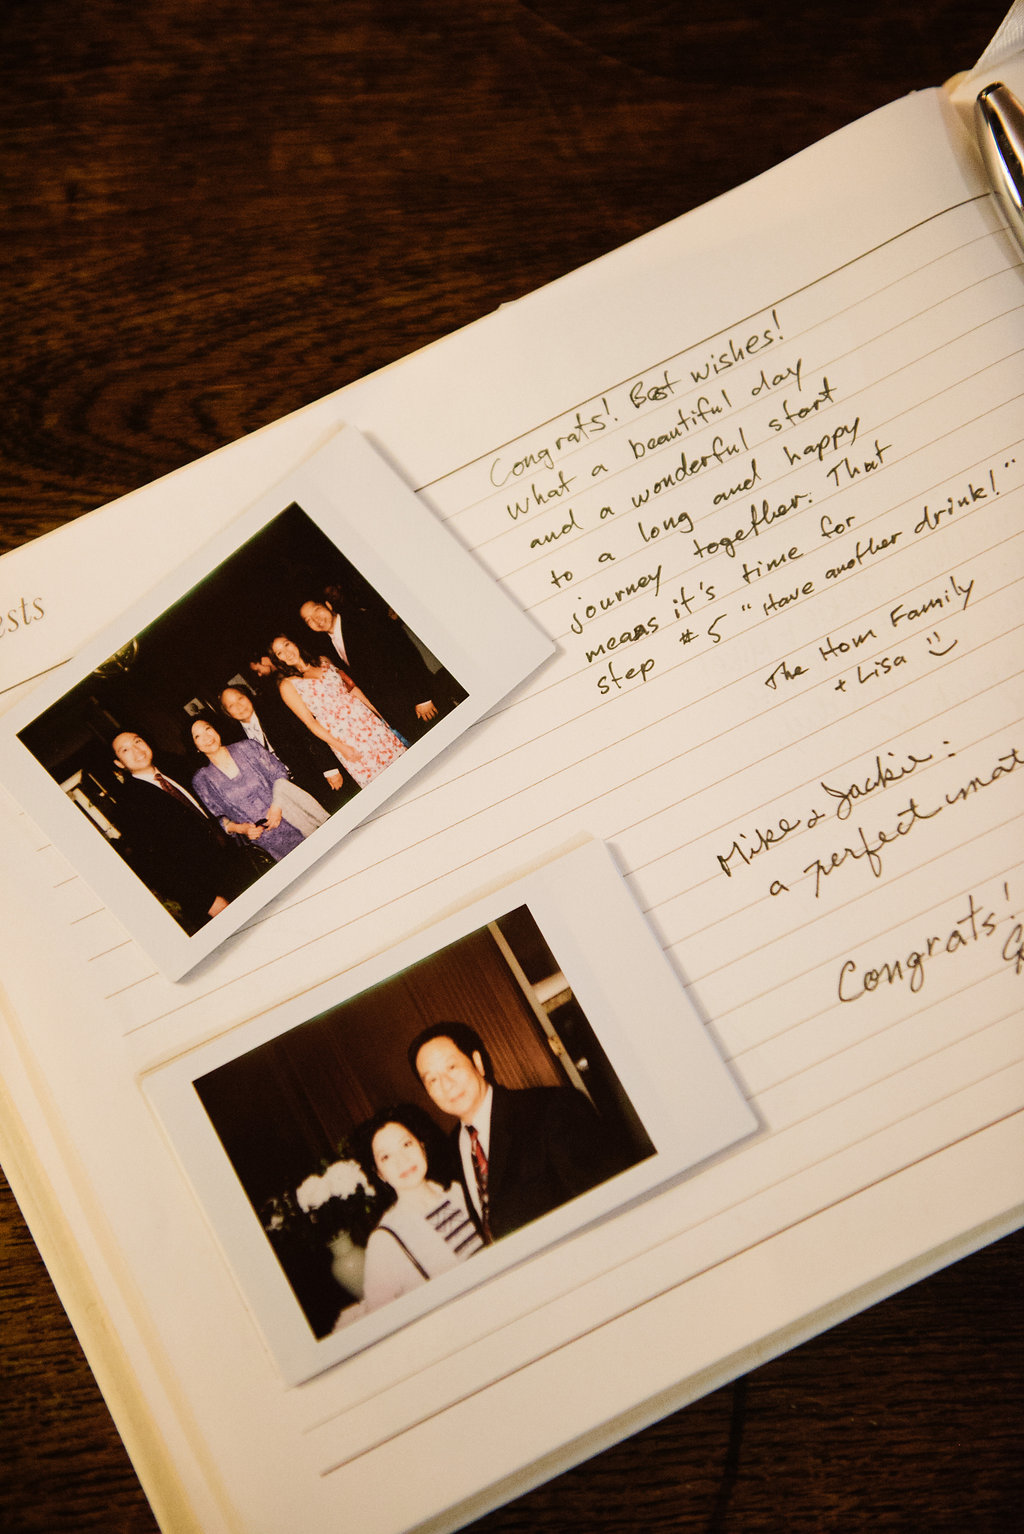 ests
Congrats! Best wishes!
What a beautiful day
and a wonderful start
to a long and happy
journey together. That
means it's time for
step #5 "Have another drink!"
The Hom Family
+ Lisa
Mike & Jackie:
a perfect mat
Congrats!